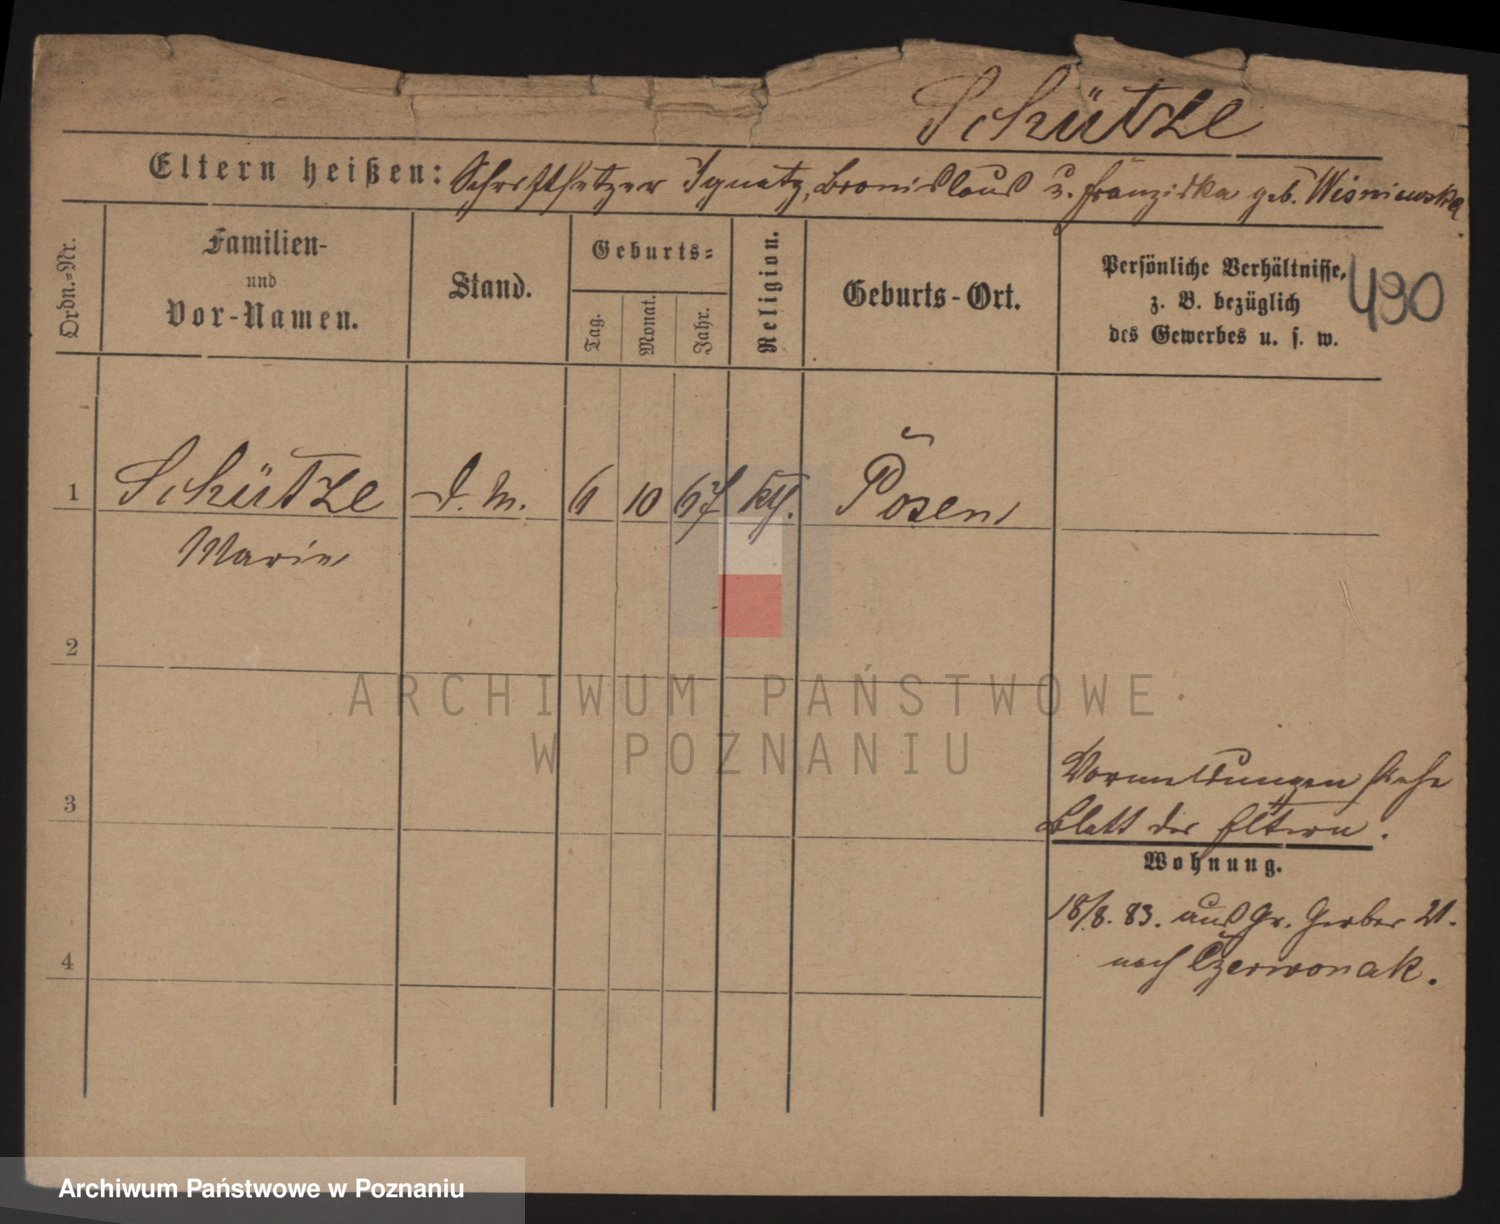 Schütze
Eltern heißen: Schriftsetzer Ignatz, Bronislaus u. Franziska geb. Wisniewska.
Ordn.-Nr.
Familien-
und
Vor-Namen.
Stand.
Geburts-
Tag.
Monat.
Jahr.
Religion.
Geburts-Ort.
Persönliche Verhältnisse,
z. B. bezüglich
des Gewerbes u. s. w.
490
1 Schütze d. M. 6 10 67 kth. Posen
Marie
2
3
4
Vormeldungen siehe
Blatt der Eltern.
Wohnung.
18/8. 83. aus Gr. Gerber 21.
nach Czerwonak.
ARCHIWUM PAŃSTWOWE
W POZNANIU
Archiwum Państwowe w Poznaniu